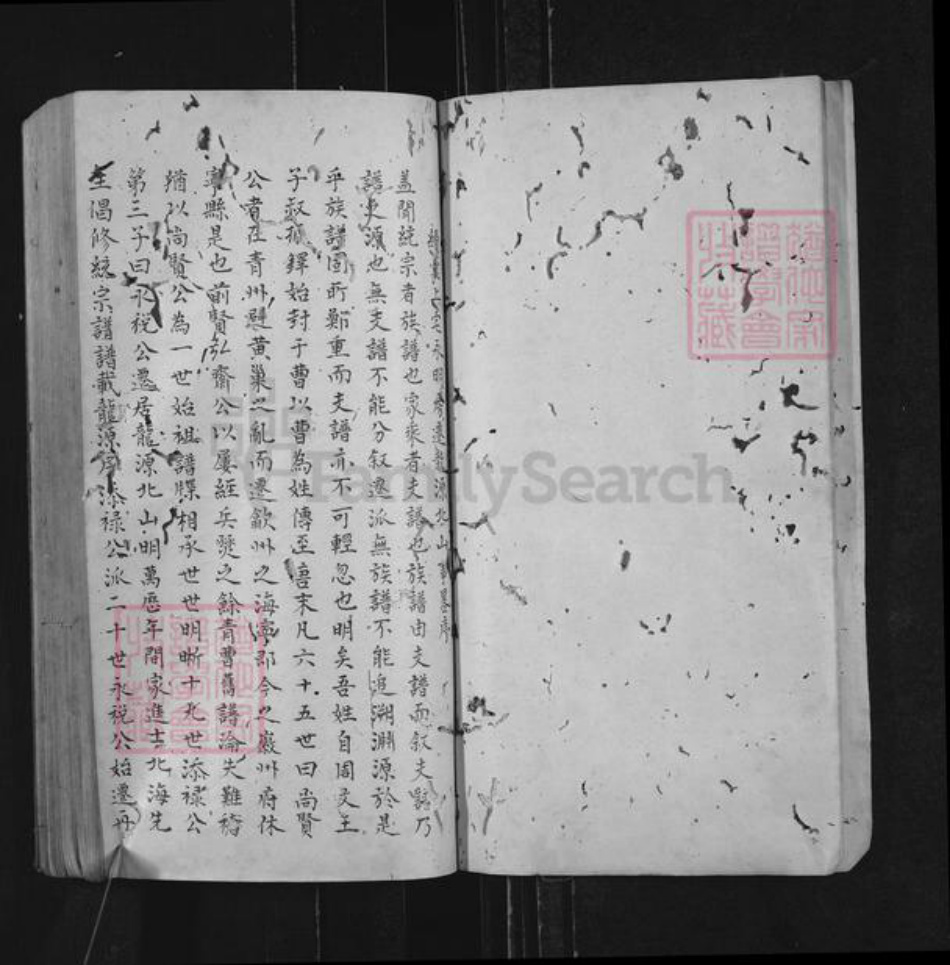 龍源北山
蓋聞統宗者族譜也家乘者支譜也族譜由支譜而叙支譜乃
譜之源也無支譜不能分叙遷派無族譜不能追溯淵源於是
乎族譜固所鄭重而支譜亦不可輕忽也明矣吾姓自周文王
子叔振鐸始封于曹以曹為姓傳至唐末凡六十五世曰尚賢
公者在青州避黄巢之亂而遷歙州之海寧郡今之徽州府休
寧縣是也前賢弘齋公以屢經兵燹之餘青曹舊譜淪失難稽
猶以尚賢公為一世始祖譜牒相承世世明晰十九世添祿公
第三子曰永稅公遷居龍源北山明萬歷年間家進士北海先
生倡修統宗譜譜載龍源添祿公派二十世永稅公始遷丹
FamilySearch